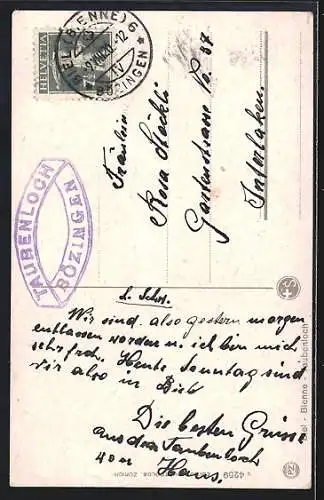 HELVETIA
BIEL (BIENNE) 6
BÖZINGEN
IV
TAUBENLOCH
BÖZINGEN
Fräulein
Rosa Stöckli
Gartenstrasse No 37
Interlaken.
L. Schw.
Wir sind also gestern morgen
entlassen worden u. ich bin mich
sehr froh. Heute Sonntag sind
wir also in Biel
Die besten Grüsse
aus der Taubenloch
Hans.
4259
Biel - Bienne - Taubenloch